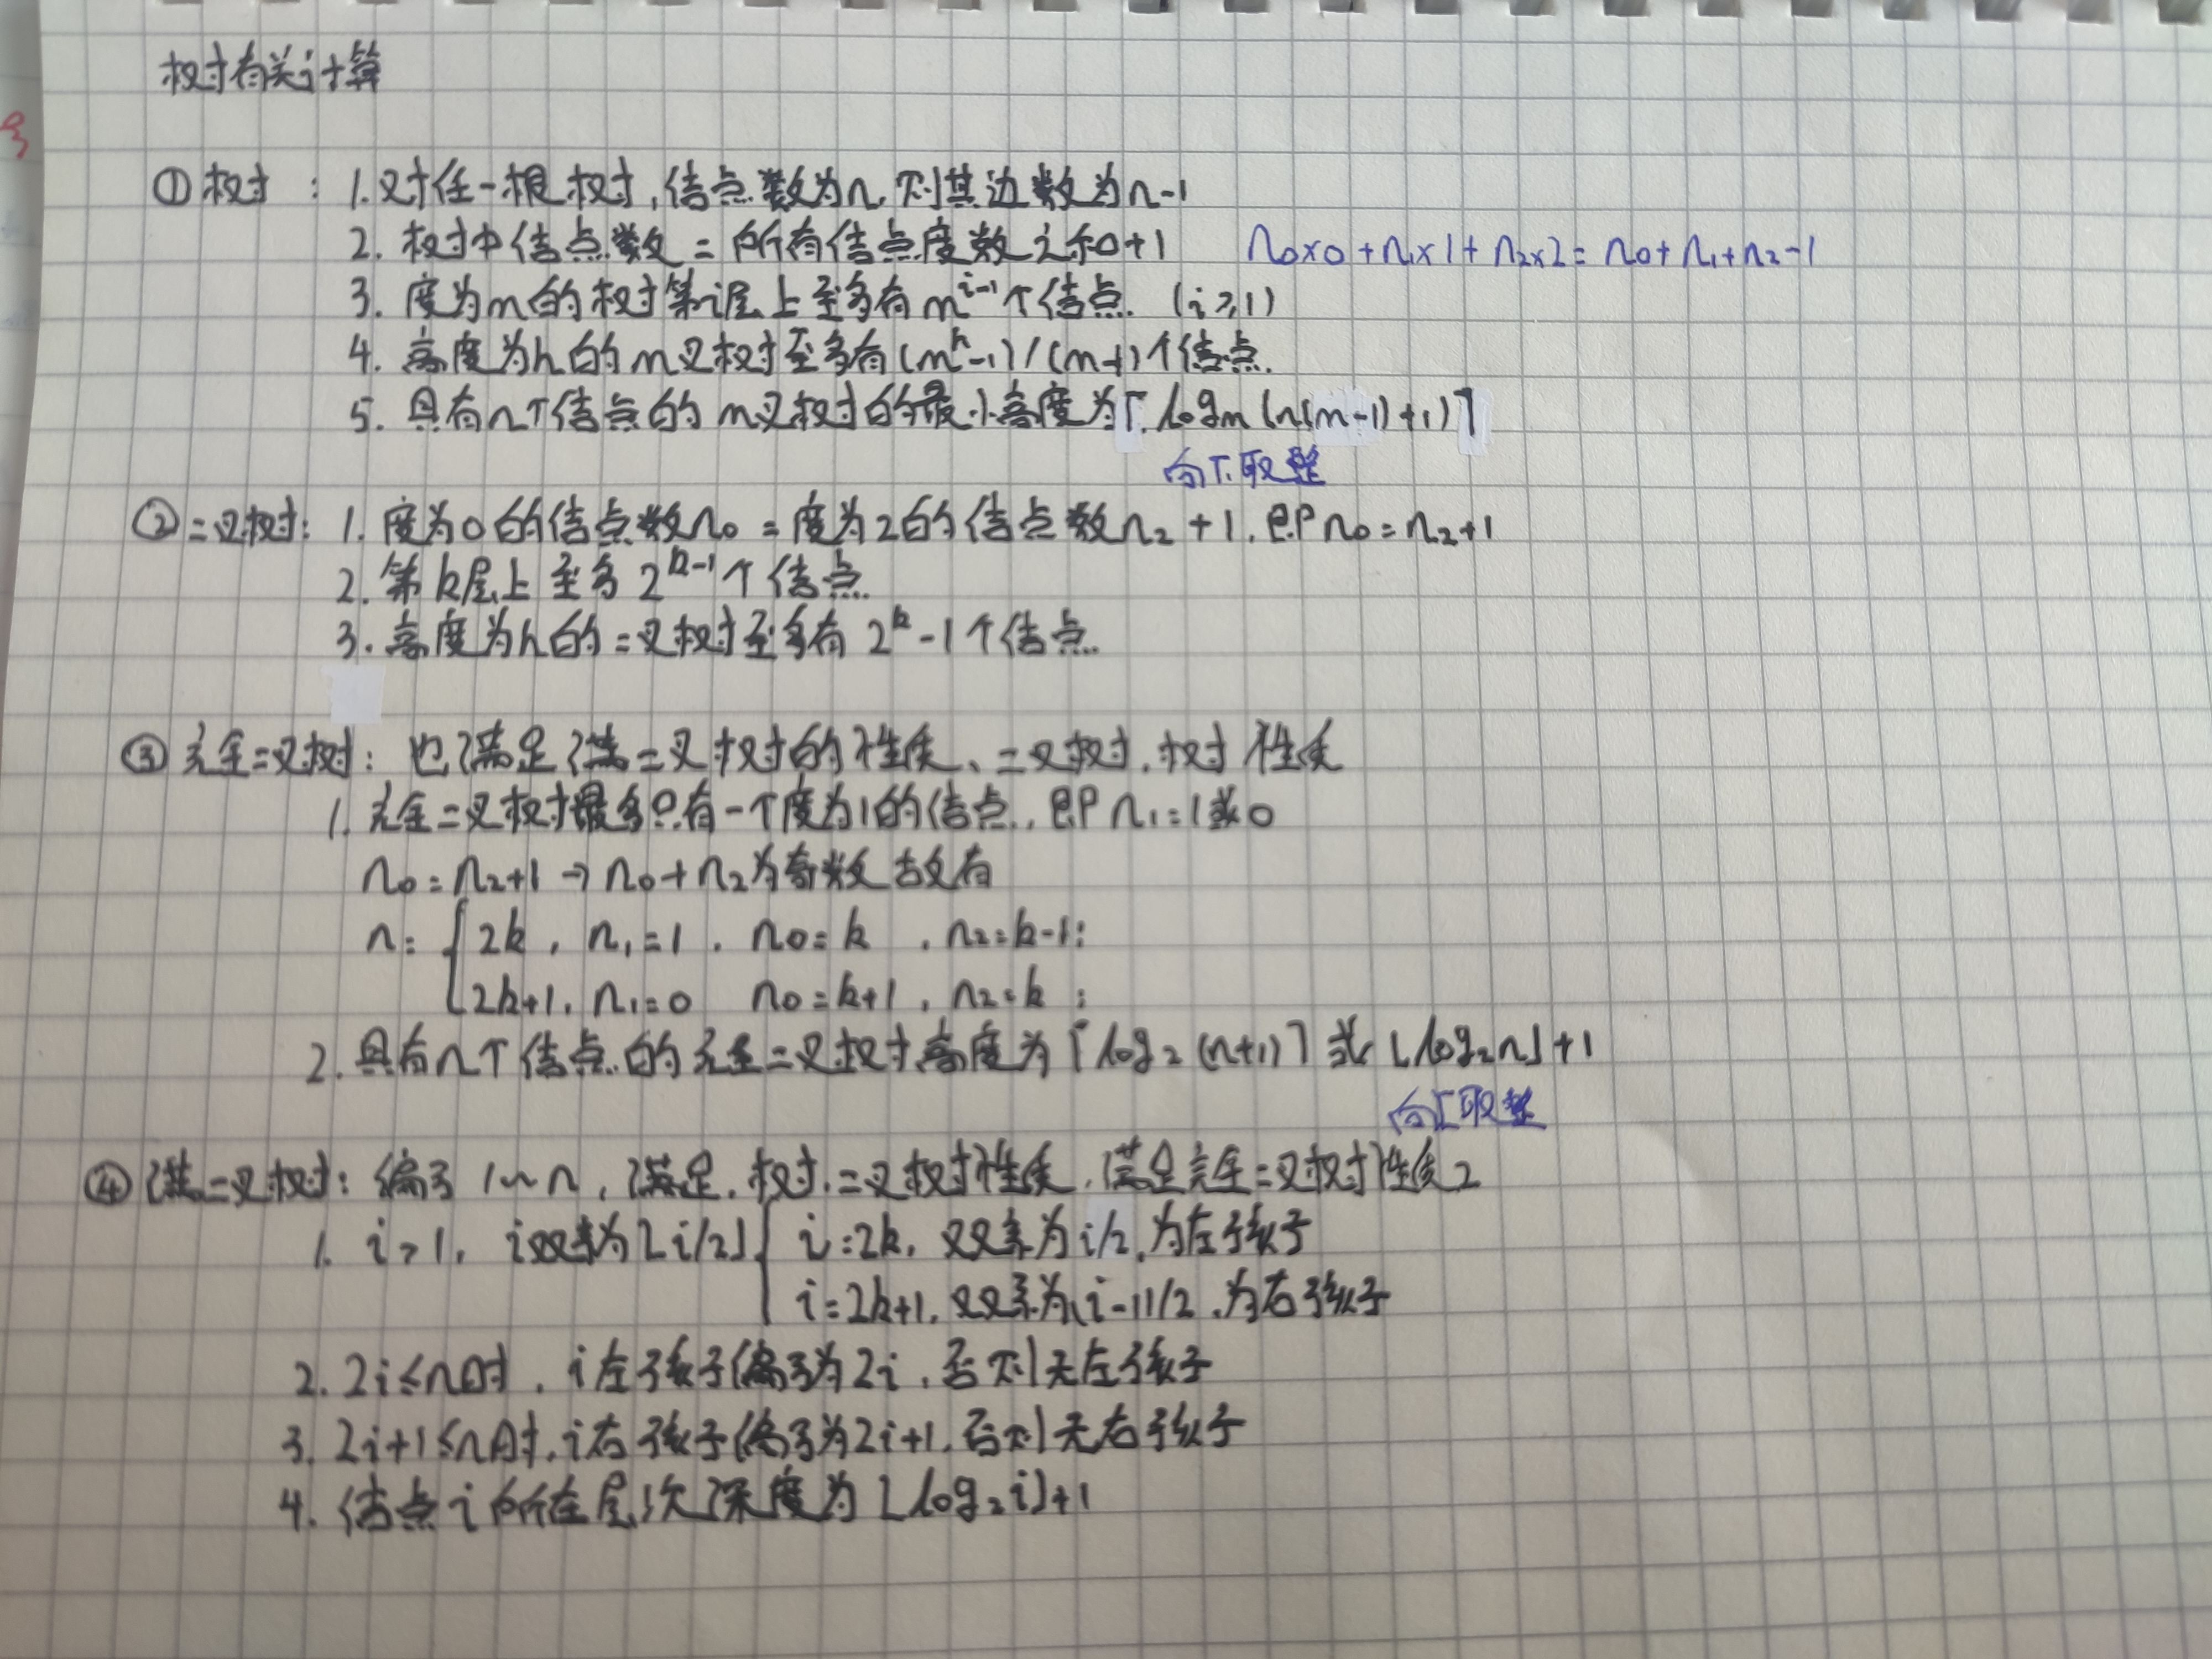 树有关计算
①树：1.对任一根树,结点数为n,则其边数为n-1
2. 树中结点数=所有结点度数之和+1 n₀×0+n₁×1+n₂×2=n₀+n₁+n₂-1
3. 度为m的树第i层上至多有mⁱ⁻¹个结点.(i≥1)
4. 高度为h的m叉树至多有(mʰ-1)/(m-1)个结点.
5. 具有n个结点的m叉树的最小高度为⌈logₘ(n(m-1)+1)⌉
取整
②二叉树：1. 度为0的结点数n₀=度为2的结点数n₂+1.即n₀=n₂+1
2. 第k层上至多2ᵏ⁻¹个结点.
3. 高度为h的二叉树至多有2ᵏ-1个结点.
③完全二叉树：也满足满二叉树的性质、二叉树.树性质
1. 完全二叉树最多只有一个度为1的结点.即n₁=1或0
n₀=n₂+1→n₀+n₂为奇数故有
n= { 2k, n₁=1. n₀=k , n₂=k-1;
2k+1, n₁=0 n₀=k+1, n₂=k;
2. 具有n个结点的完全二叉树高度为⌈log₂(n+1)⌉或⌊log₂n⌋+1
取整
④满二叉树：编号1~n,满足.树.二叉树性质.满足完全二叉树性质2
1. i>1, i双亲为⌊i/2⌋{ i=2k, 双亲为i/2,为左孩子
i=2k+1,双亲为(i-1)/2,为右孩子
2. 2i≤n时,i左孩子编号为2i,否则无左孩子
3. 2i+1≤n时,i右孩子编号为2i+1,否则无右孩子
4. 结点i所在层次深度为⌊log₂i⌋+1